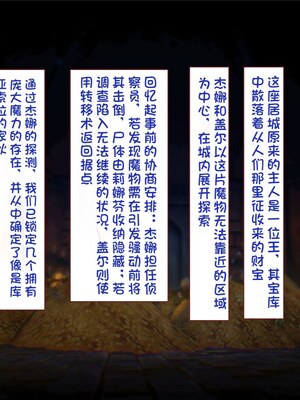 这座居城原来的主人是一位王，其宝库
中散落着从人们那里征收来的财宝
杰娜和盖尔以这片魔物无法靠近的区域
为中心，在城内展开探索
回忆起事前的协商安排：杰娜担任侦
察员，若发现魔物需在引发骚动前将
其击倒，尸体由莉娜芬收纳隐藏；若
调查陷入无法继续的状况，盖尔则使
用转移术返回据点
通过杰娜的探测，我们已锁定几个拥有
庞大魔力的存在，并从中确定了像是库